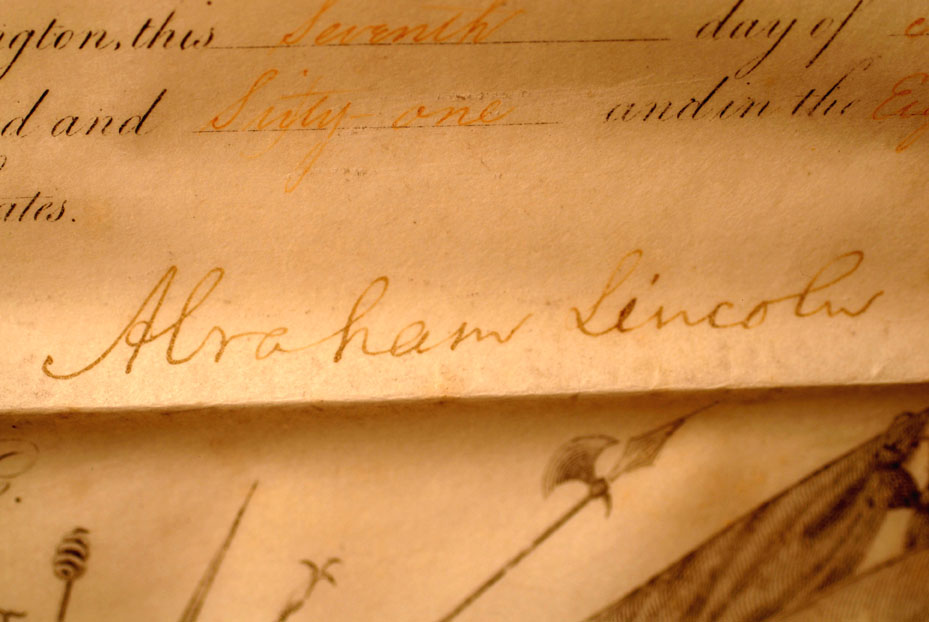 ngton, this Seventh day of
d and Sixty-one and in the Eig
ates.
Abraham Lincoln